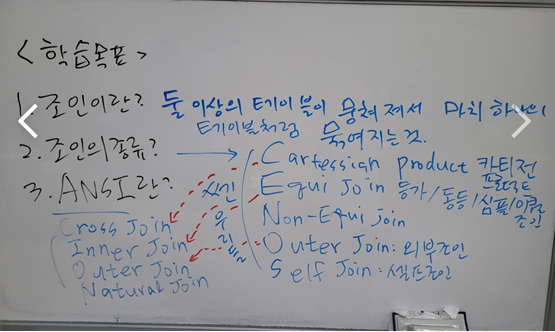 <학습목표>
1. 조인이란? 둘 이상의 테이블이 뭉쳐져서 마치 하나의
테이블처럼 묶여지는것.
2. 조인의종류? → Cartessian product 카티전
프로덕트
3. ANSI란? Equi Join 등가/동등/심플/이퀄
조인
Non-Equi join
Outer Join: 외부조인
Self Join: 셀프조인
Cross Join
Inner Join
Outer Join
Natural Join